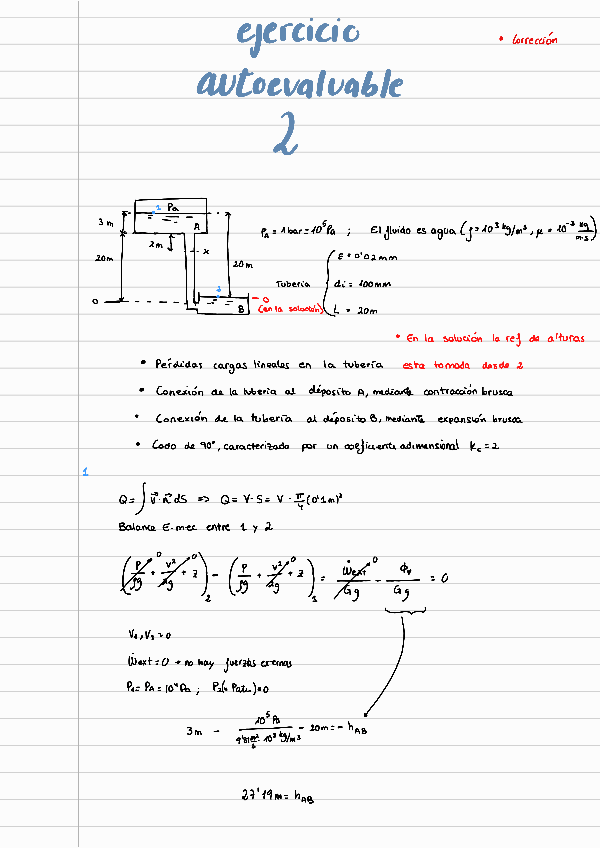 ejercicio
autoevaluable
2
• Corrección
1 Pa
3 m
A
2m
x
20m
20m
0
2
B
0
(en la solución)
PA = 1 bar = 10⁵ Pa ; El fluido es agua (ρ = 10³ kg/m³, μ = 10⁻³ kg/m·s)
Tubería
ε = 0'02 mm
di = 100mm
L = 20m
• En la solución la ref de alturas
• Pérdidas cargas lineales en la tubería esta tomada desde 2
• Conexión de la tubería al depósito A, mediante contracción brusca
• Conexión de la tubería al depósito B, mediante expansión brusca
• Codo de 90°, caracterizado por un coeficiente adimensional Kc = 2
1
Q = ∫ v⃗·n⃗ dS => Q = V·S = V · π/4 (0'1m)²
Balance E.mec entre 1 y 2
(P/ρg + v²/2g + z)₂ - (P/ρg + v²/2g + z)₁ = Ẇext/Gg - Φv/Gg = 0
V1, V2 ≈ 0
Ẇext = 0 → no hay fuerzas externas
P1 = PA = 10⁵ Pa ; P2 (= Patm) = 0
3m - 10⁵ Pa / 9'81 m/s² · 10³ kg/m³ - 20m = - hAB
27'19 m = hAB